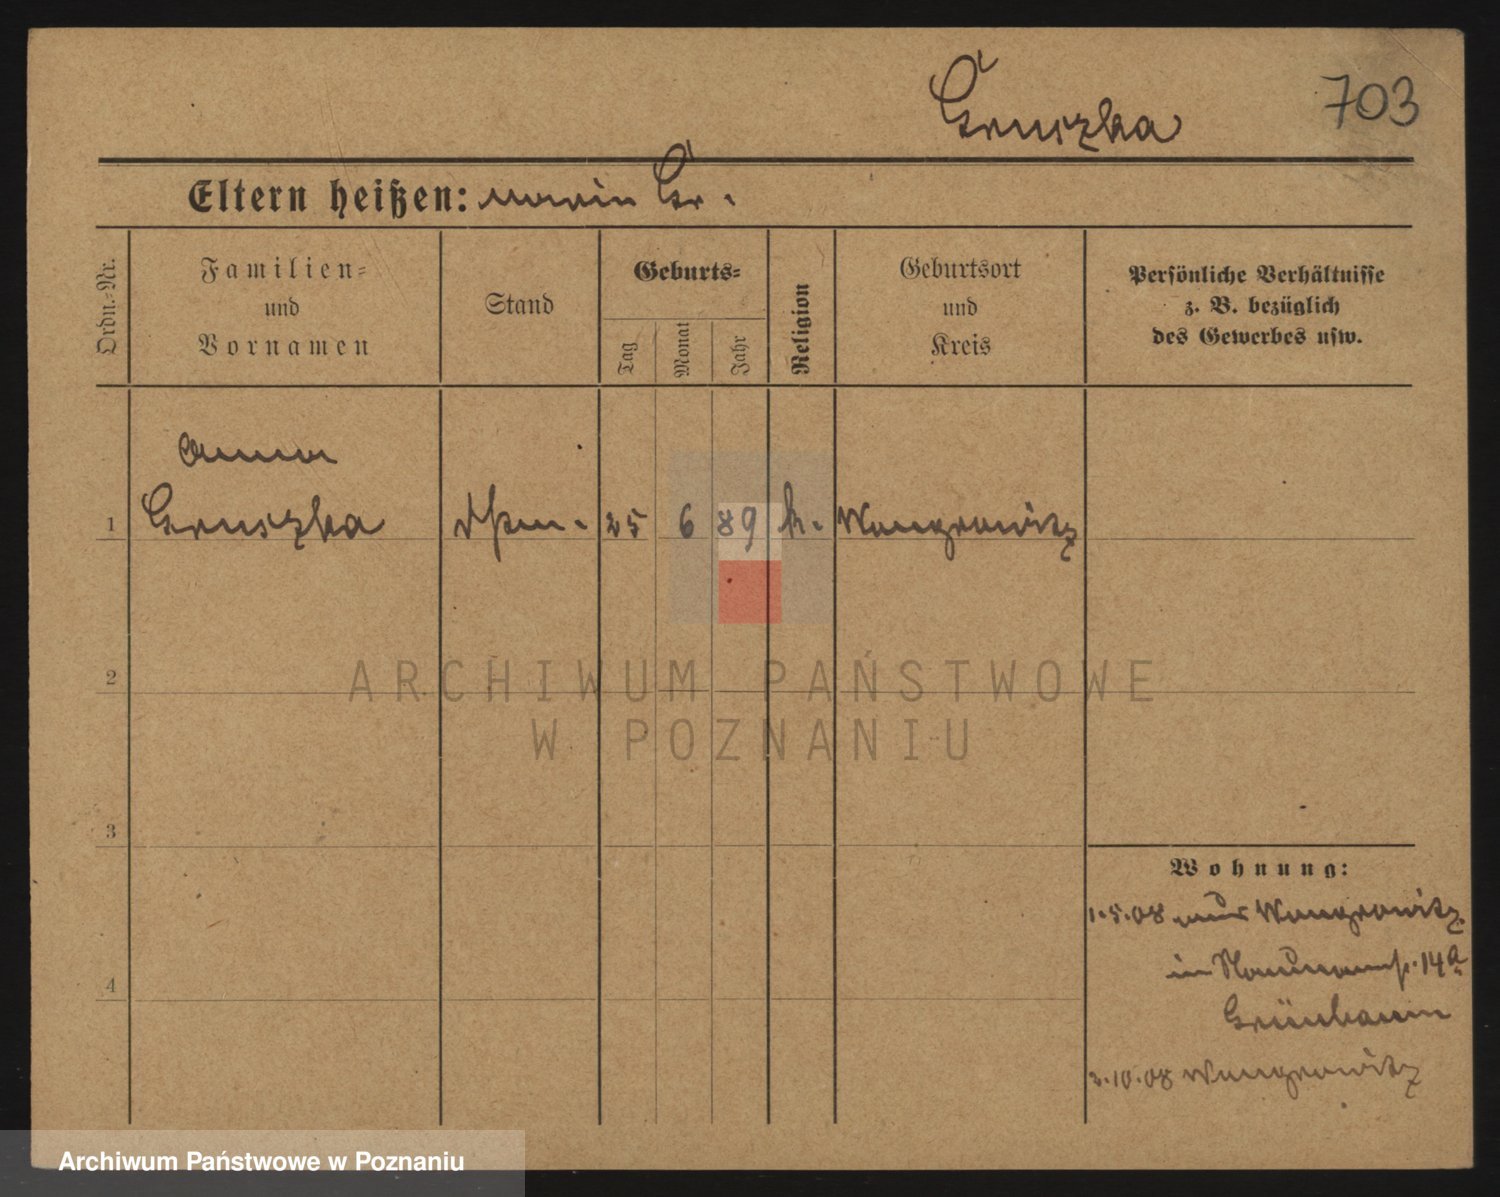 703
Gruszka
Eltern heißen: Gr.
Ordn.-Nr.
Familien- und Vornamen
Stand
Geburts-
Tag
Monat
Jahr
Religion
Geburtsort und Kreis
Persönliche Verhältnisse z. B. bezüglich des Gewerbes usw.
Anna
1 Gruszka 25 6 89 k. Wongrowitz
2
3
4
Wohnung:
1.5.08 aus Wongrowitz
in Naumannstr. 14a
Grünbaum
3.10.08 Wongrowitz
ARCHIWUM PAŃSTWOWE
W POZNANIU
Archiwum Państwowe w Poznaniu